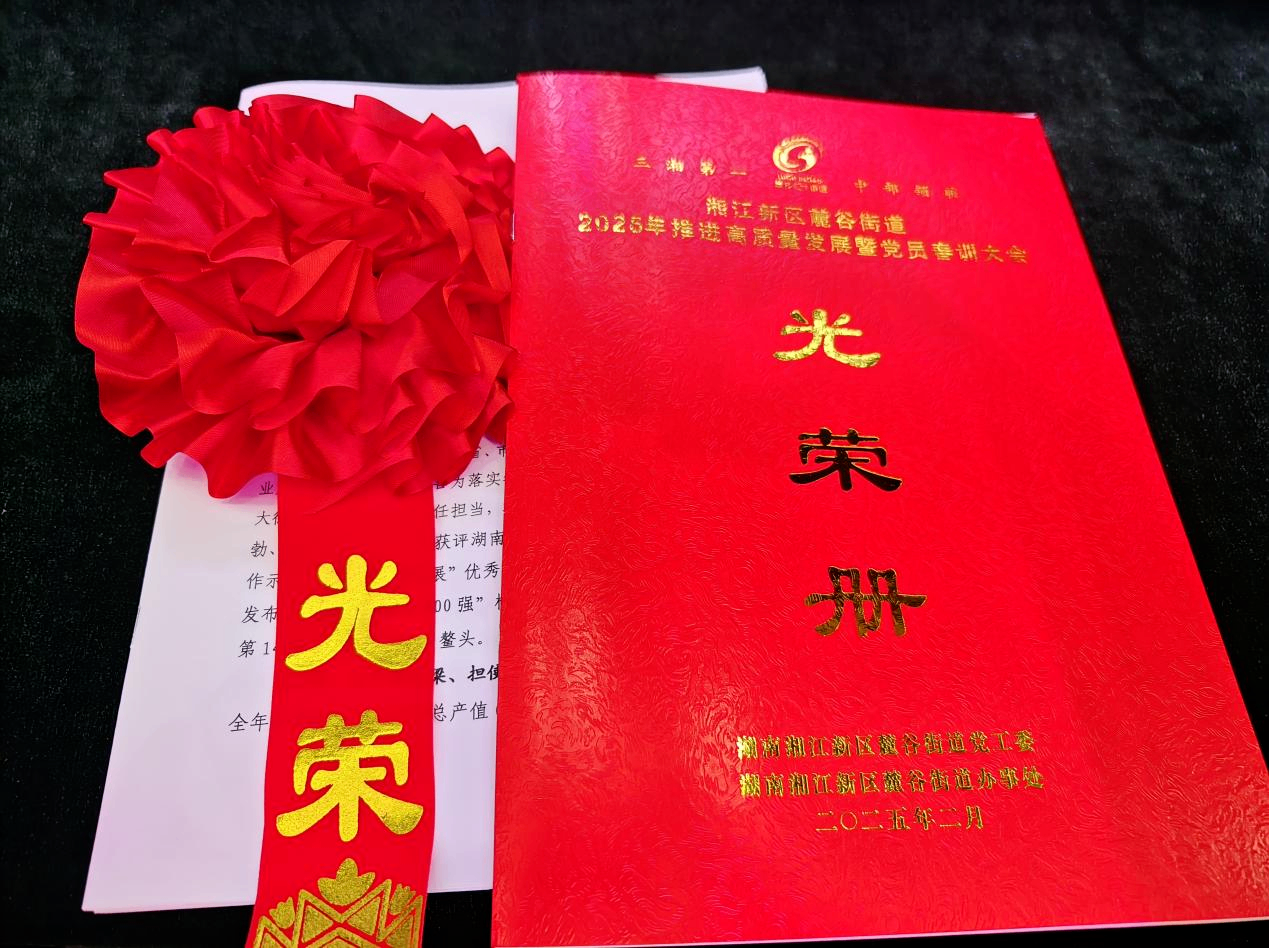 三湘第一
中部领先
湘江新区麓谷街道
2025年推进高质量发展暨党员春训大会
光
荣
册
湖南湘江新区麓谷街道党工委
湖南湘江新区麓谷街道办事处
二〇二五年二月
光
荣
省、市
业
为落实
大
任担当，
勃、
获评湖南
作示
展”优秀
发布
00强”
第1
鳌头。
梁、担使
全年
总产值（